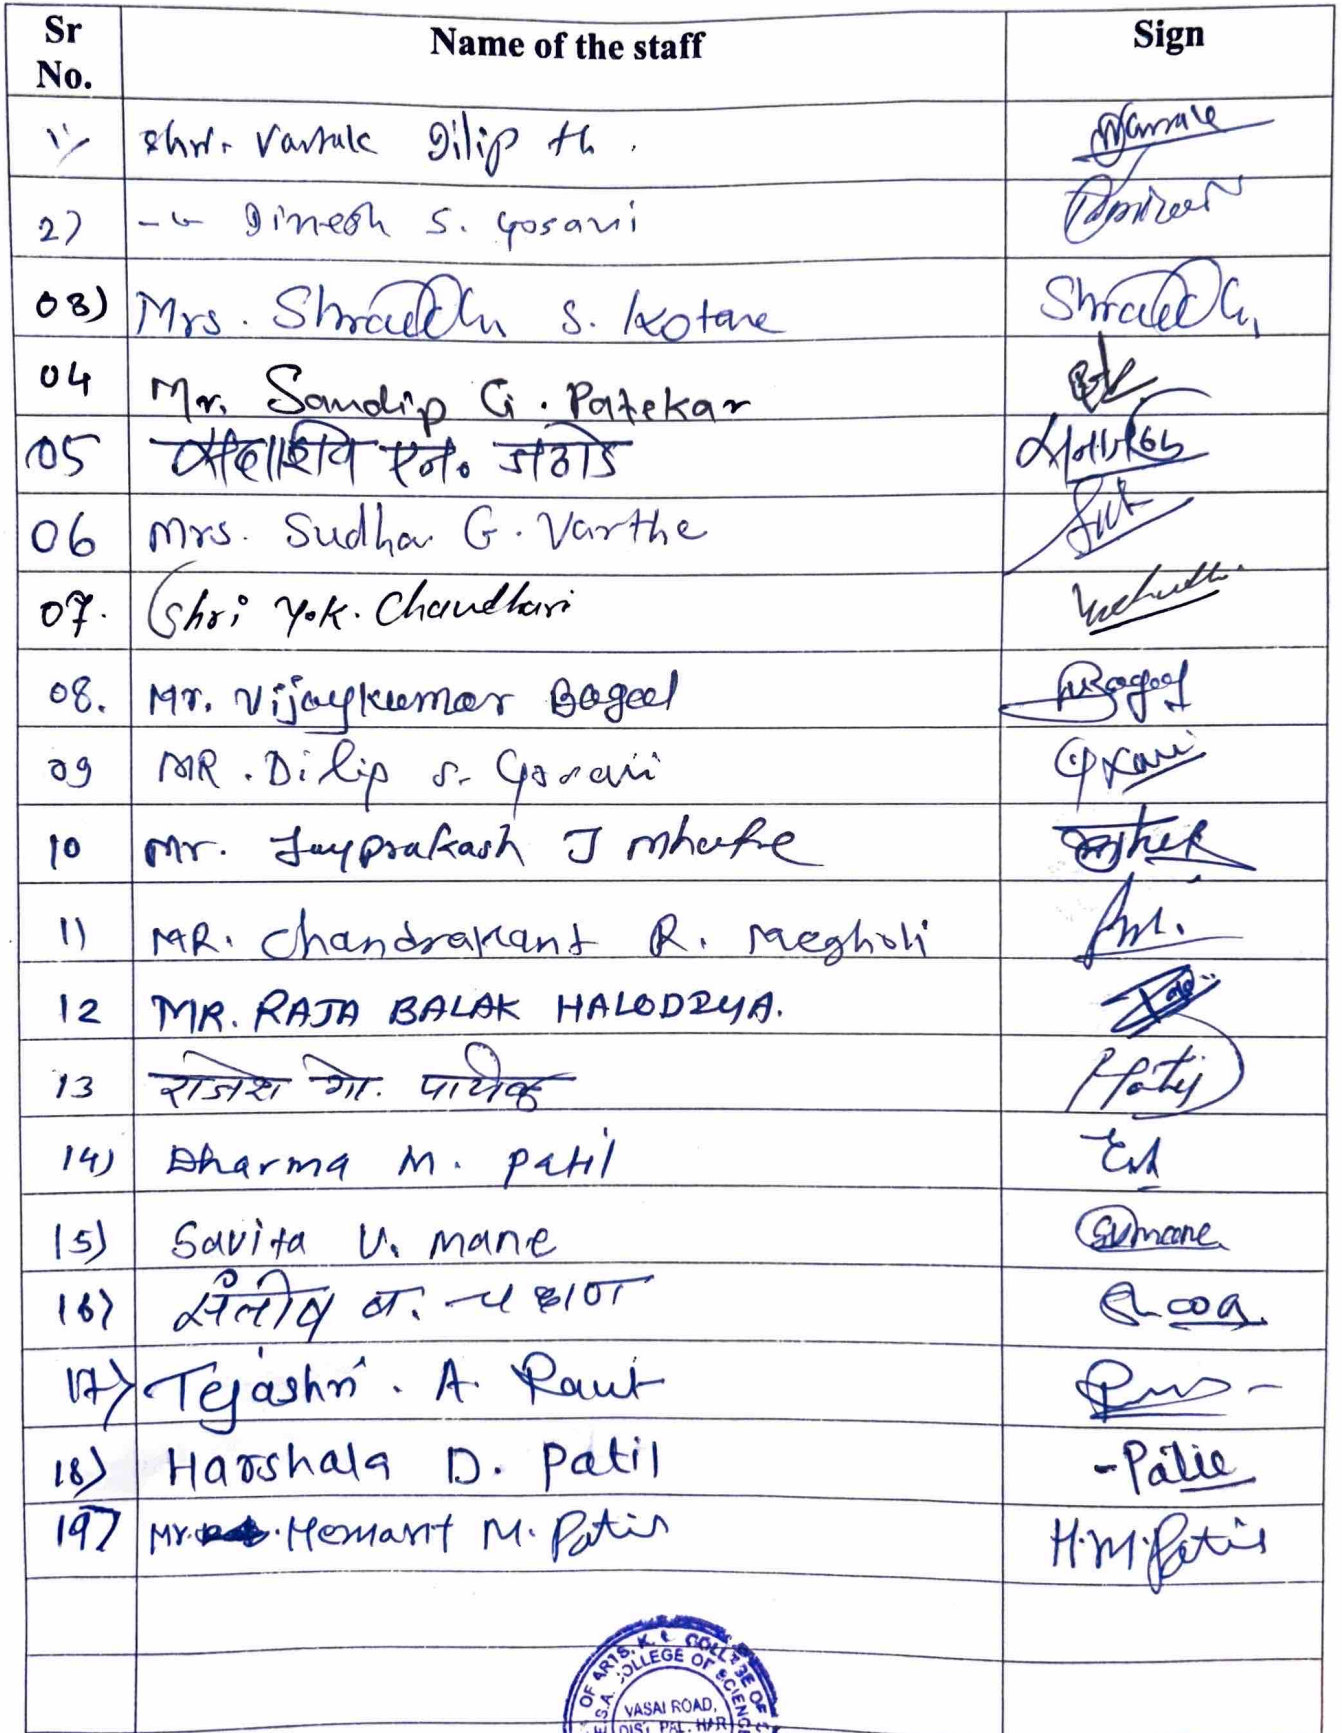 Sr No. Name of the staff Sign
1) Shri. Vartak Dilip H.
2) -"- Dinesh S. Gosavi
03) Mrs. Shraddha S. Kotare Shraddha
04 Mr. Sandip G. Patekar
05 सदाशिव एन. जठोडे
06 Mrs. Sudha G. Varthe
07. Shri Y.K. Chaudhari
08. Mr. Vijaykumar Bagael
09 MR. Dilip S. Gosavi
10 Mr. Jayprakash J Mhatre
11) MR. Chandrakant R. Megholi
12 MR. RAJA BALAK HALODIYA.
13 राजेश गो.
14) Dharma M. Patil
15) Savita V. Mane SVmane
16) संतोष ब. चव्हाण
17) Tejashri. A. Raut
18) Harshala D. Patil -Patil
19) Mr. Hemant M. Patil H.M.Patil
OF ARTS, K. COLLEGE OF
E.S.A. COLLEGE OF SCIENCE
VASAI ROAD,
DIST PAL HAR